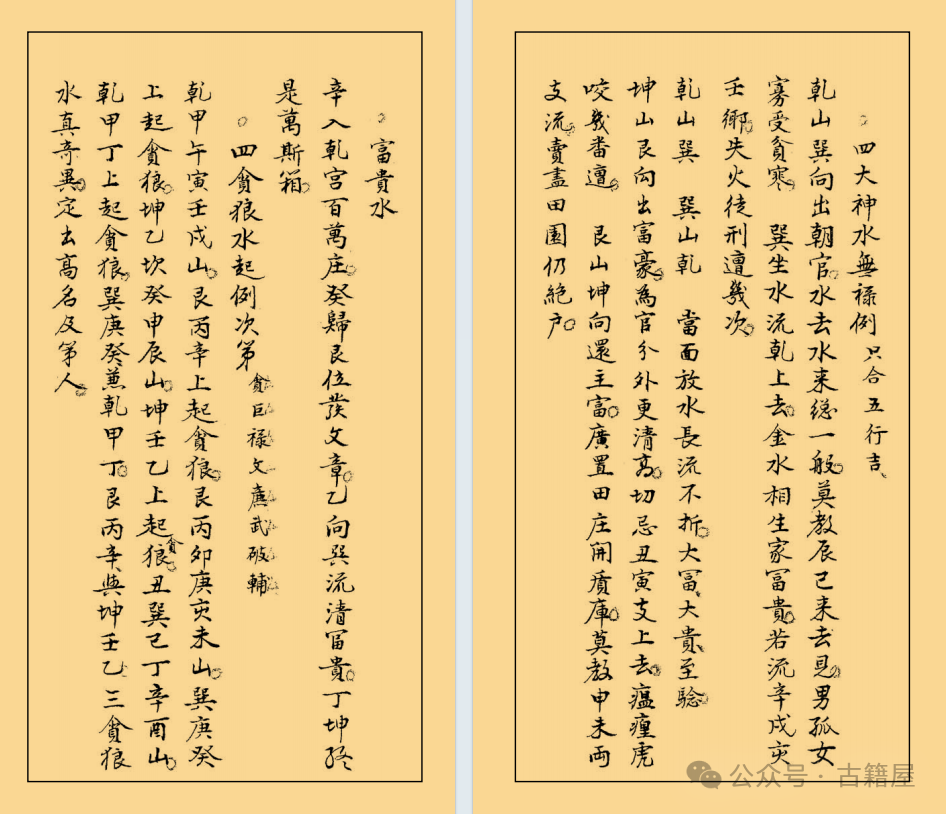 四大神水無祿例 只合五行吉
乾山巽向出朝官水去水来總一般莫教辰巳来去見男孤女
寡受貧寒 巽坐水流乾上去金水相生家冨貴若流辛戌亥
壬鄉失火徒刑遭幾次
乾山巽 巽山乾 當面放水長流不折大冨大貴至驗
坤山艮向出富豪為官分外更清高切忌丑寅支上去瘟𤶊虎
咬幾番遭 艮山坤向還主富廣置田庄開質庫莫教申未両
支流賣盡田園仍絶户
富貴水
辛入乾宮百萬庄癸歸艮位發文章乙向巽流清冨貴丁坤終
是萬斯箱
四貪狼水起例次第 貪巨祿文廉武破輔
乾甲午寅壬戌山艮丙辛上起貪狼艮丙卯庚亥未山巽庚癸
上起貪狼坤乙坎癸申辰山坤壬乙上起貪狼丑巽巳丁辛酉山
乾甲丁上起貪狼巽庚癸兼乾甲丁艮丙辛與坤壬乙三貪狼
水真竒異定出高名及第人
公众号 · 古籍屋